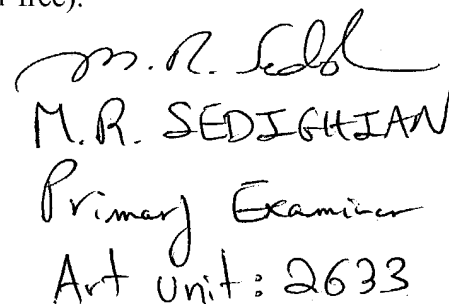 free).
M. R. Sedigh
M.R. SEDIGHIAN
Primary Examiner
Art Unit: 2633